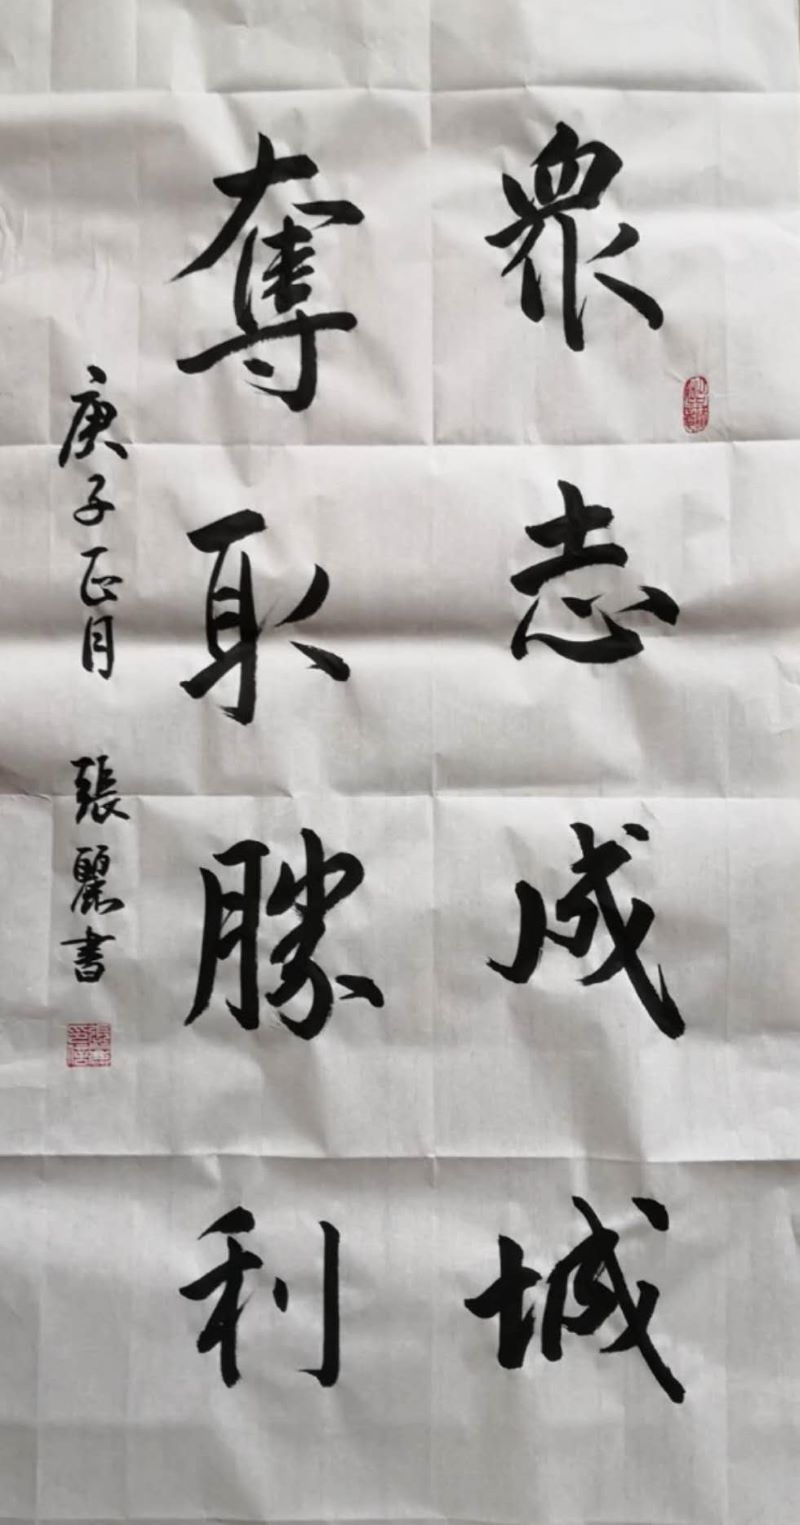 眾志成城
奪取勝利
庚子正月 張麗書